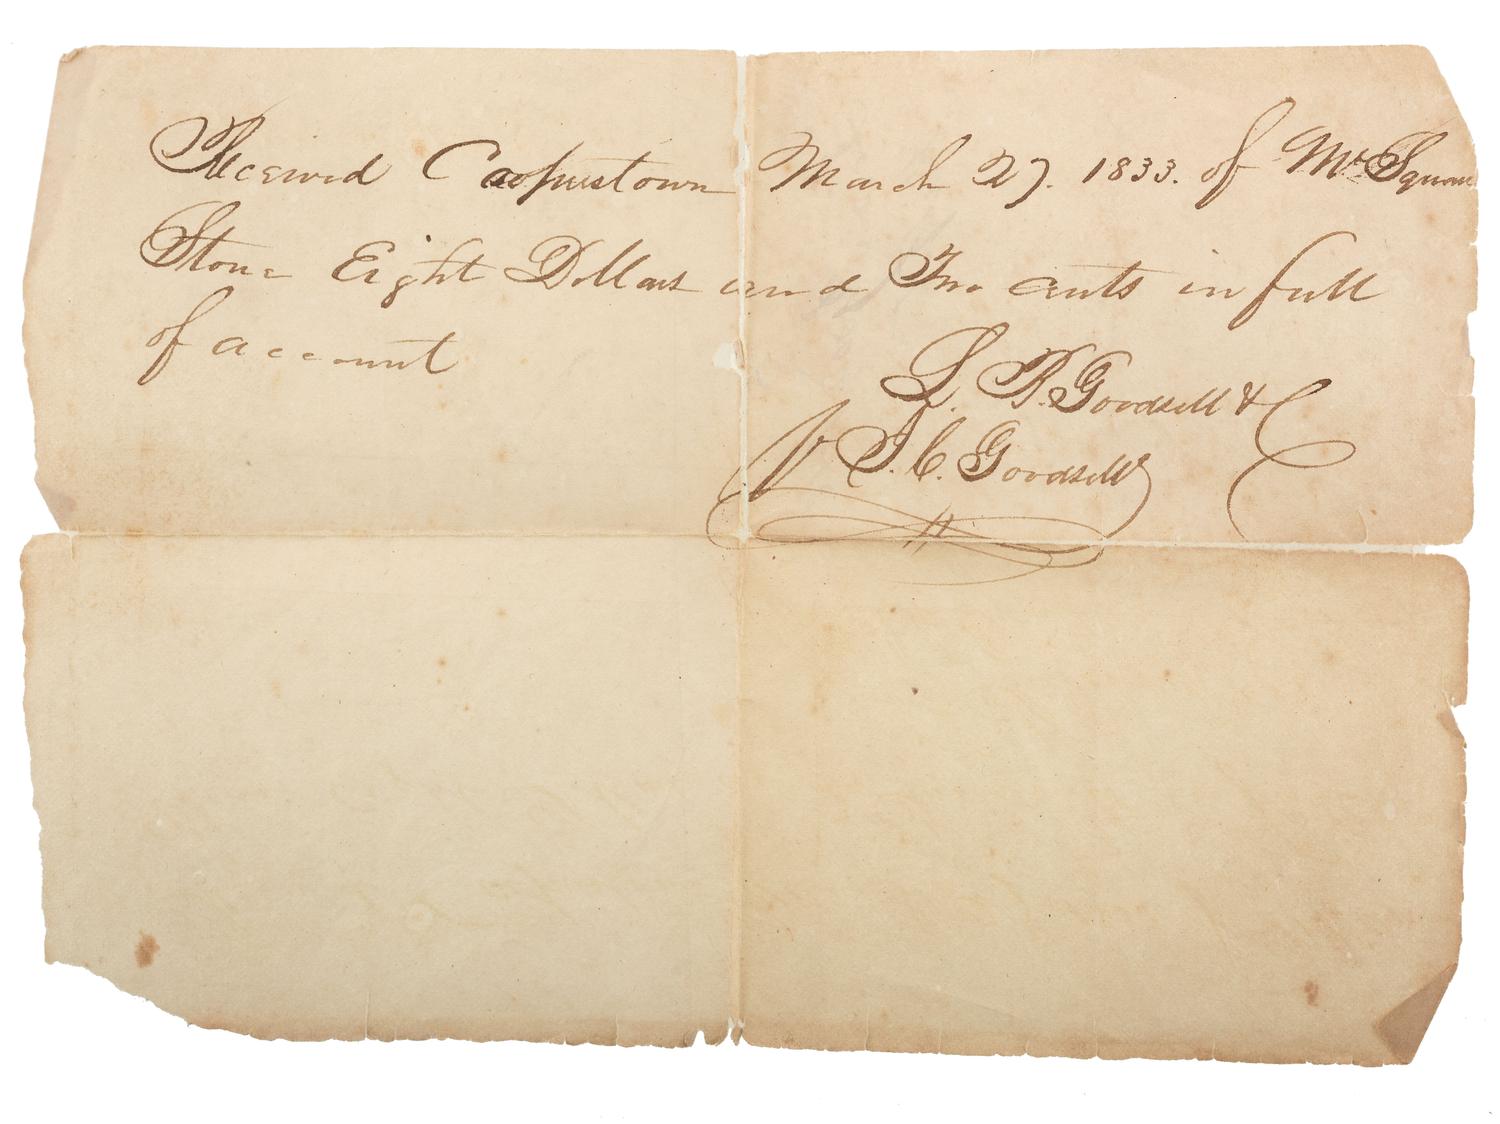 Received Cooperstown March 27. 1833. of Mr Squam
Stone Eight Dollars and Two cents in full
of account
L. B. Goodsell & C
pr J. C. Goodsell